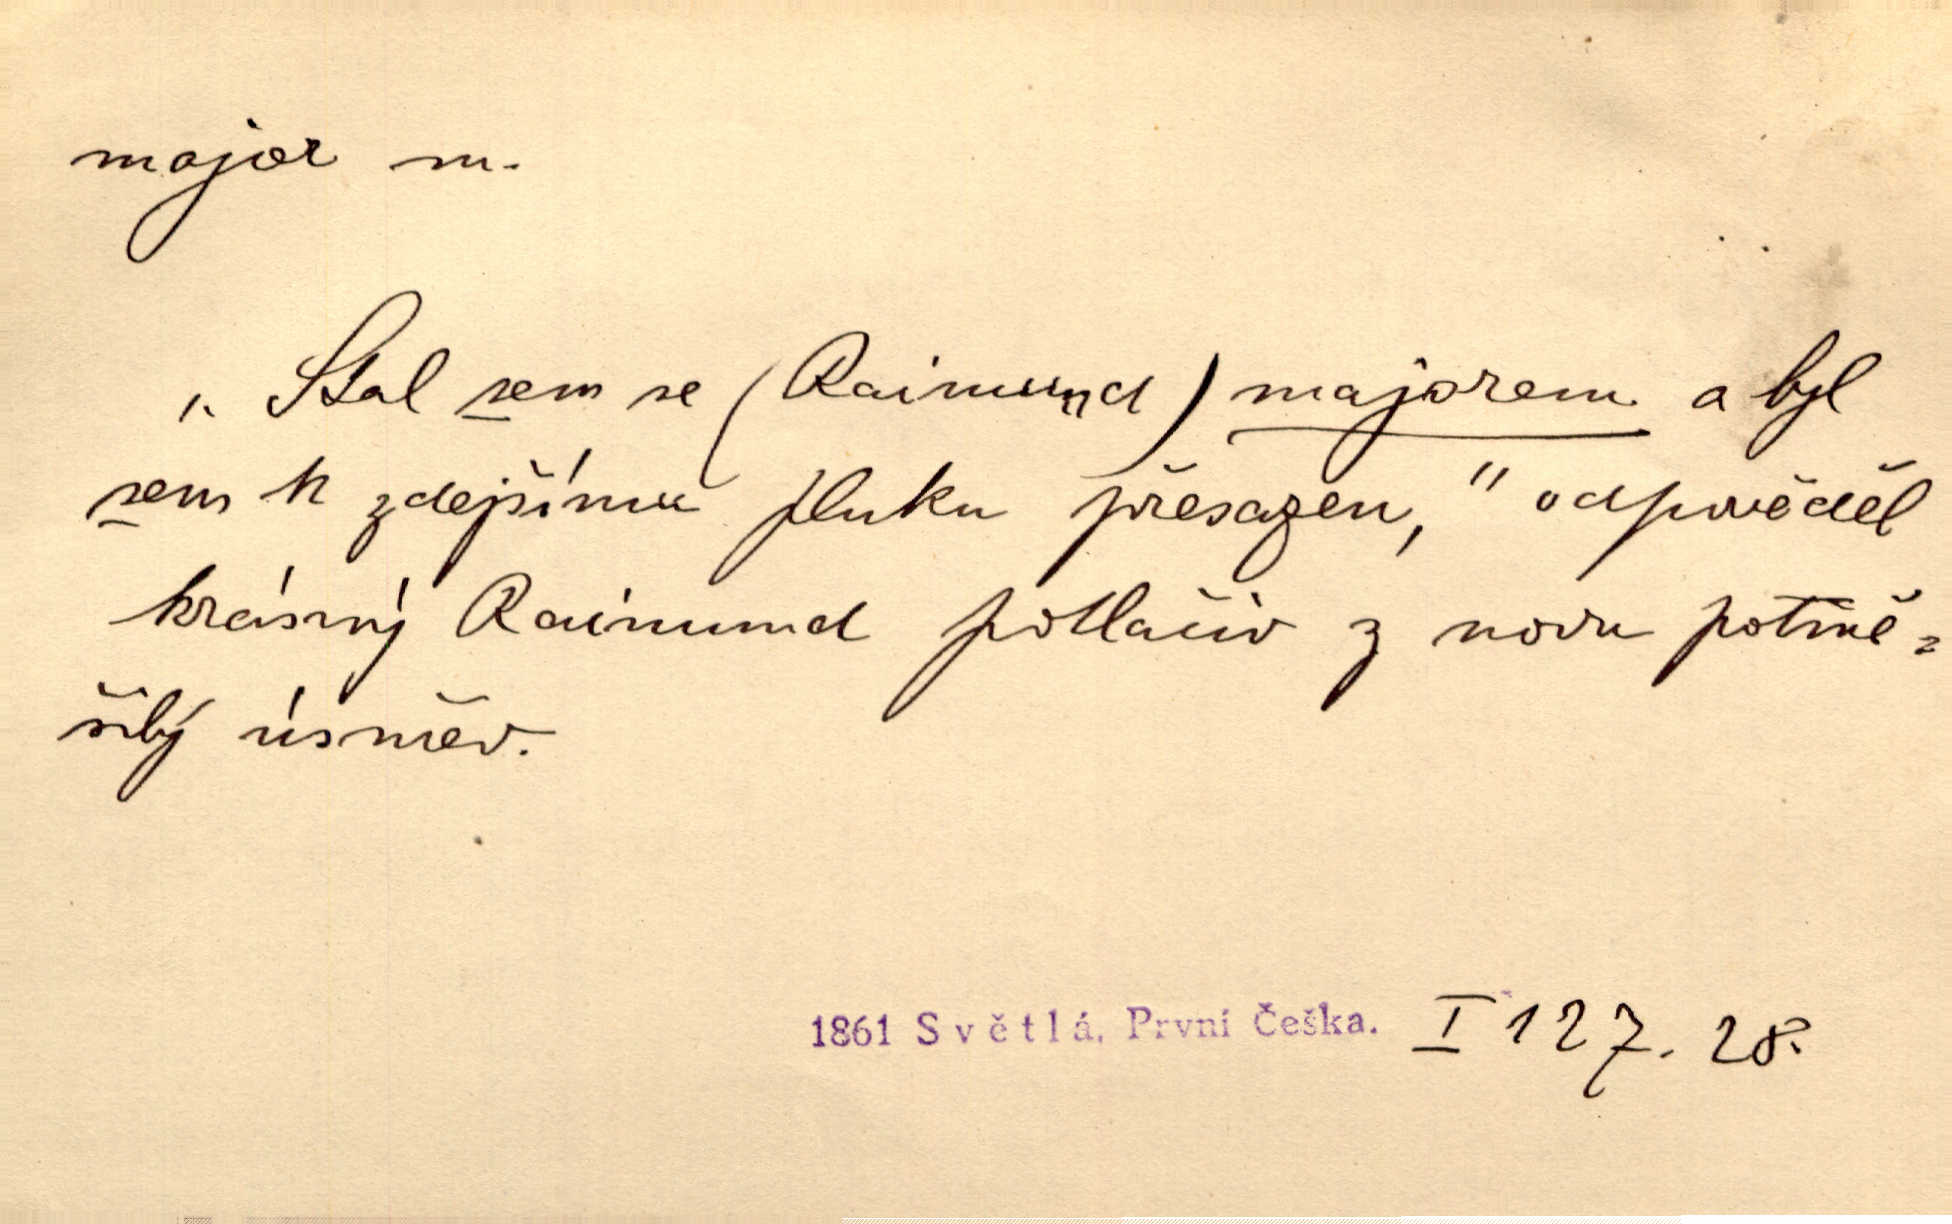 major m.
„Stal sem se (Raimund) majorem a byl
sem k zdejšímu pluku přesazen,“ odpověděl
krásný Raimund potlačiv z novu potmě-
šilý úsměv.
1861 Světlá, První Češka. I 127. 28.